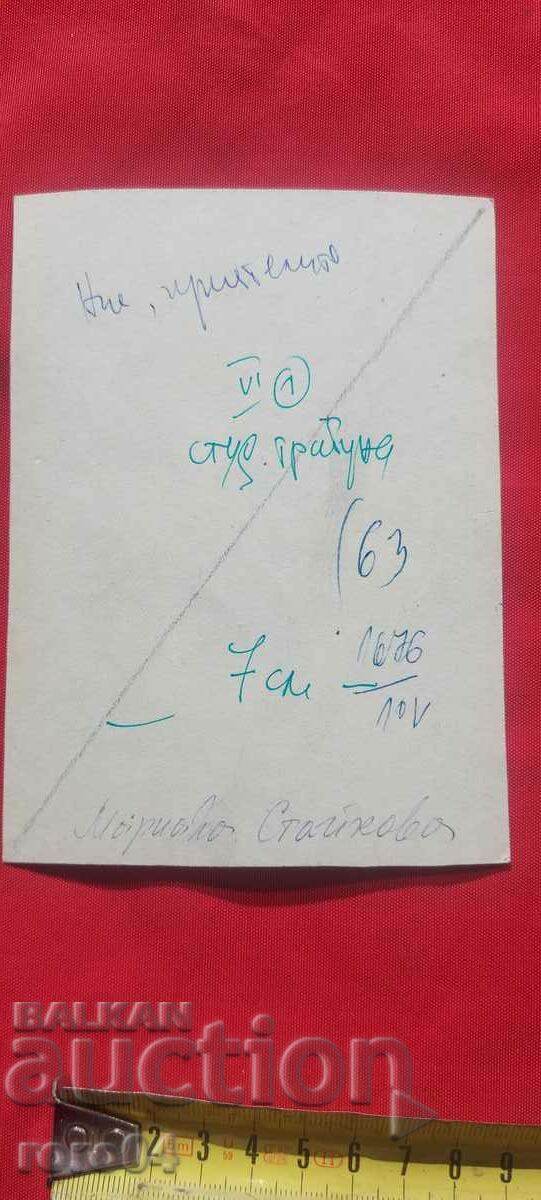 Ние, приятелите
VI 1
студ. трибуна
(63
7 см
1676
10 V
Мариана Стайкова
BALKAN
auction
roro04
2 3 4 5 6 7 8 9